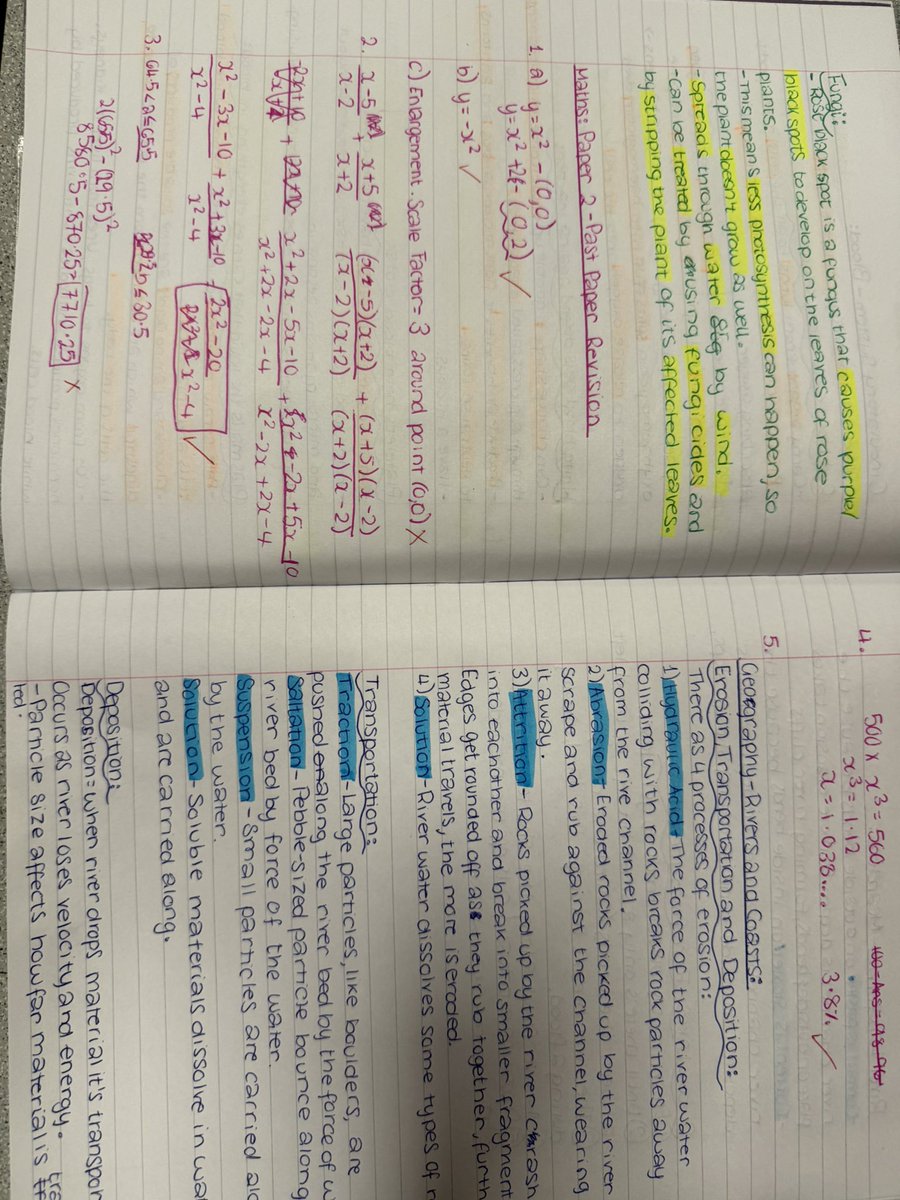 Fungi:
- Rose black spot is a fungus that causes purple/
black spots to develop on the leaves of rose
plants.
- This means less photosynthesis can happen, so
the plant doesn't grow as well.
- Spreads through water by wind.
- Can be treated by using fungicides and
by stripping the plant of its affected leaves.
Maths: Paper 2 - Past Paper Revision
1. a) y = x² - (0,0)
y = x² + 2 - (0,2) ✓
b) y = -x² ✓
c) Enlargement. Scale Factor = 3 around point (0,0) X
2. x-5/x-2 + x+5/x+2 (x-5)(x+2)/(x-2)(x+2) + (x+5)(x-2)/(x+2)(x-2)
x²+2x-5x-10/x²+2x-2x-4 + x²-2x+5x-10/x²-2x+2x-4
x²-3x-10/x²-4 + x²+3x-10/x²-4 = 2x²-20/x²-4 ✓
3. 64.5 ≤ a ≤ 65.5 ≤ 30.5
2(65.5)² - (29.5)²
8580.5 - 870.25 = 7710.25 X
4. 500 × x³ = 560
x³ = 1.12
x = 1.038.... 3.8% ✓
5.
Geography - Rivers and Coasts:
Erosion, Transportation and Deposition:
There as 4 processes of erosion:
1) Hydraulic Acid - The force of the river water
colliding with rocks breaks rock particles away
from the rive channel.
2) Abrasion - Eroded rocks picked up by the river
scrape and rub against the channel, wearing
it away.
3) Attrition - Rocks picked up by the river crash
into eachother and break into smaller fragment
Edges get rounded off as they rub together, furth
material travels, the more is eroded.
4) Solution - River water dissolves some types of r
Transportation:
Traction - Large particles, like boulders, are
pushed along the river bed by the force of w
Saltation - Pebble-sized particle bounce along
river bed by force of the water.
Suspension - Small particles are carried alo
by the water.
Solution - Soluble materials dissolve in wat
and are carried along.
Deposition:
Deposition = when river drops material it's transpor
Occurs as river loses velocity and energy.
- Particle size affects how far material is tra
ted.